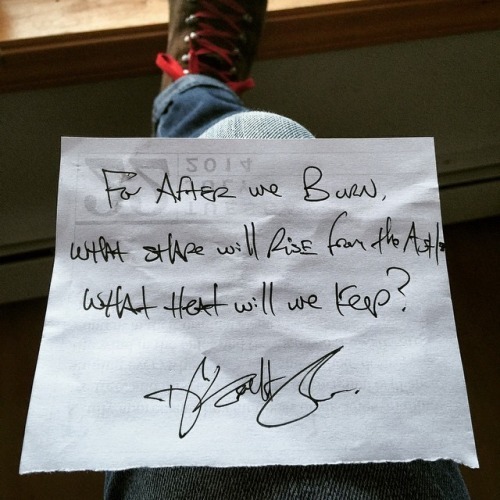 For AFTER we BURN,
WHAT SHAPE will RISE from the Ashes
WHAT HEAT will we Keep?
2014